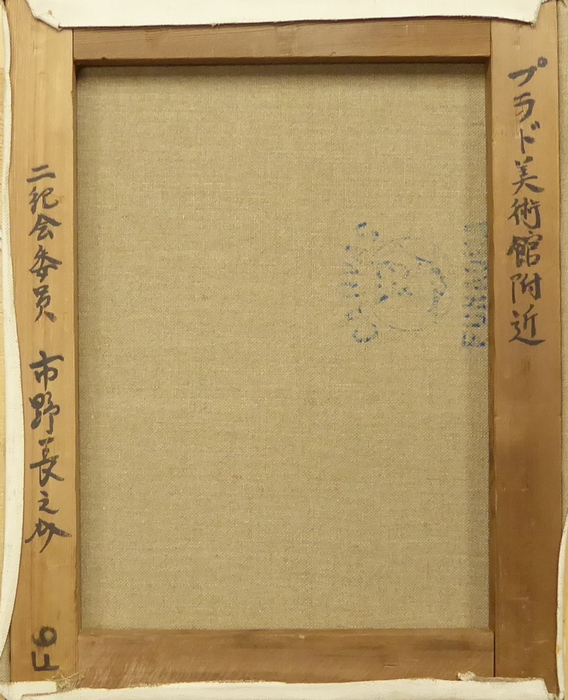 プラド美術館附近
二紀会委員 市野長之介
F6
FUNAOKA
CANVAS